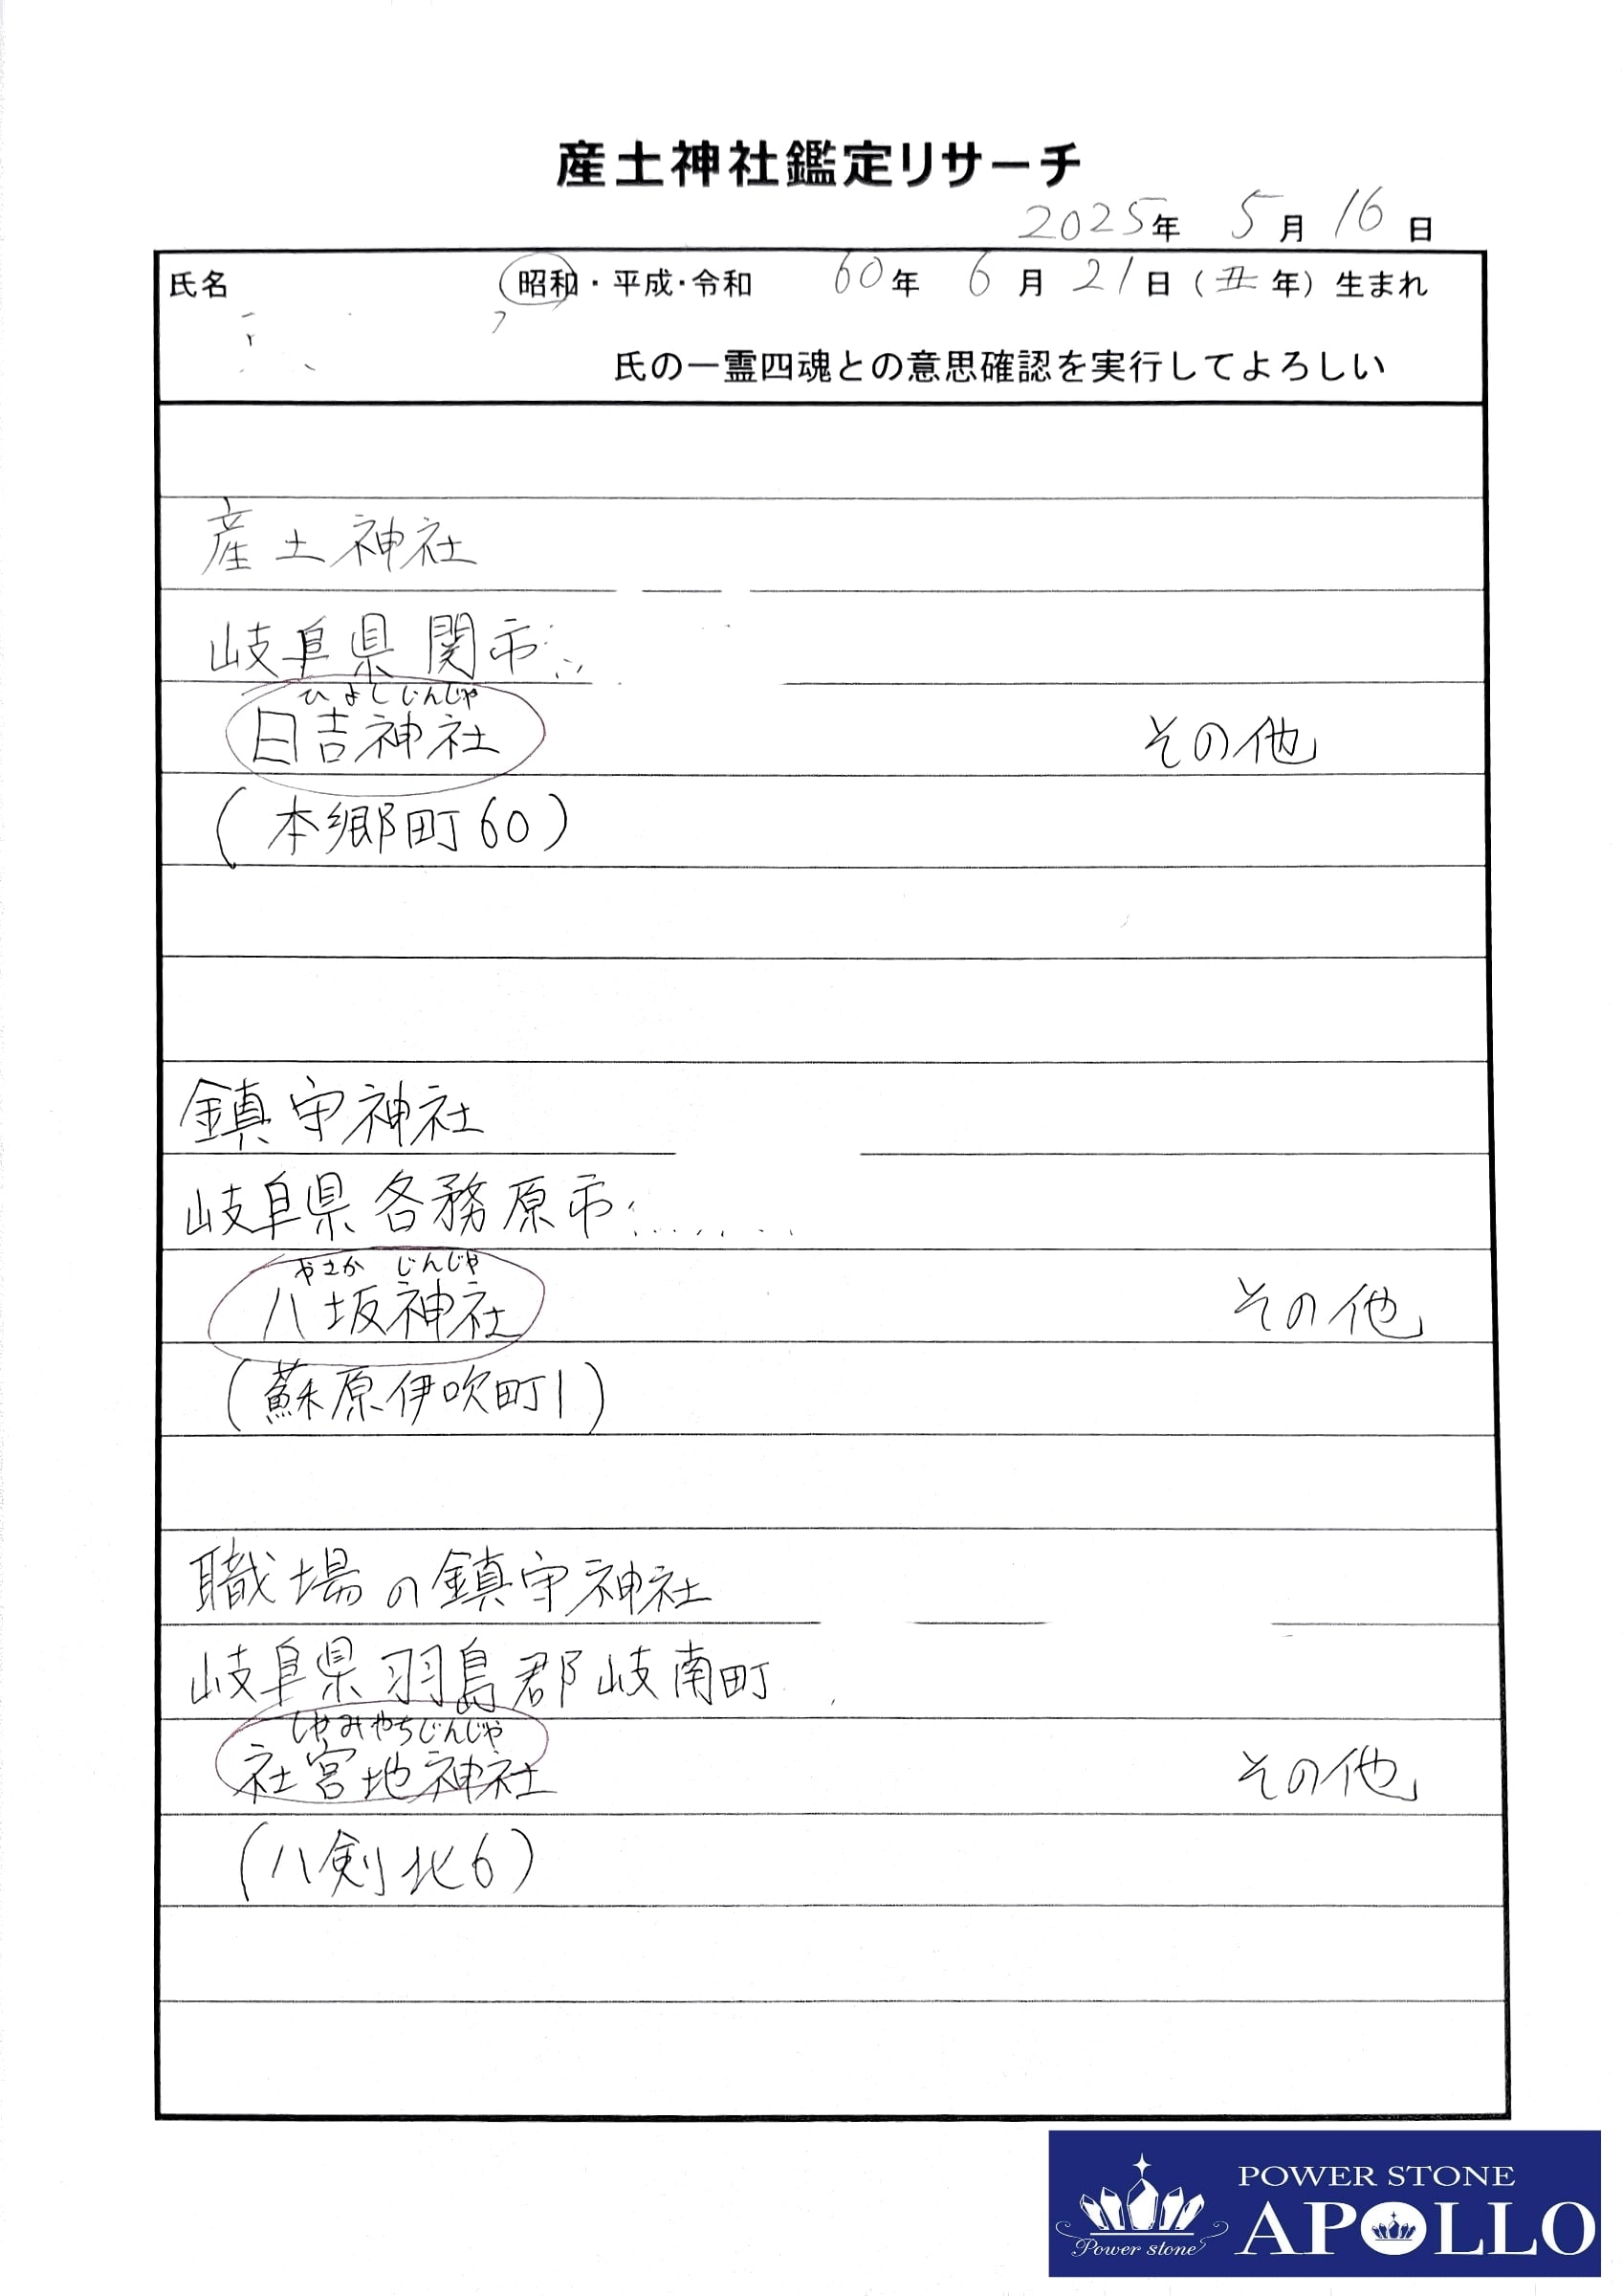 産土神社鑑定リサーチ
2025年 5月 16日
氏名 昭和・平成・令和 60年 6月 21日（丑年）生まれ
氏の一霊四魂との意思確認を実行してよろしい
産土神社
岐阜県関市
ひよしじんじゃ
日吉神社 その他
(本郷町60)
鎮守神社
岐阜県各務原市
やさか じんじゃ
八坂神社 その他
(蘇原伊吹町1)
職場の鎮守神社
岐阜県羽島郡岐南町
しゃみやちじんじゃ
社宮地神社 その他
(八剣北6)
POWER STONE
APOLLO
Power stone